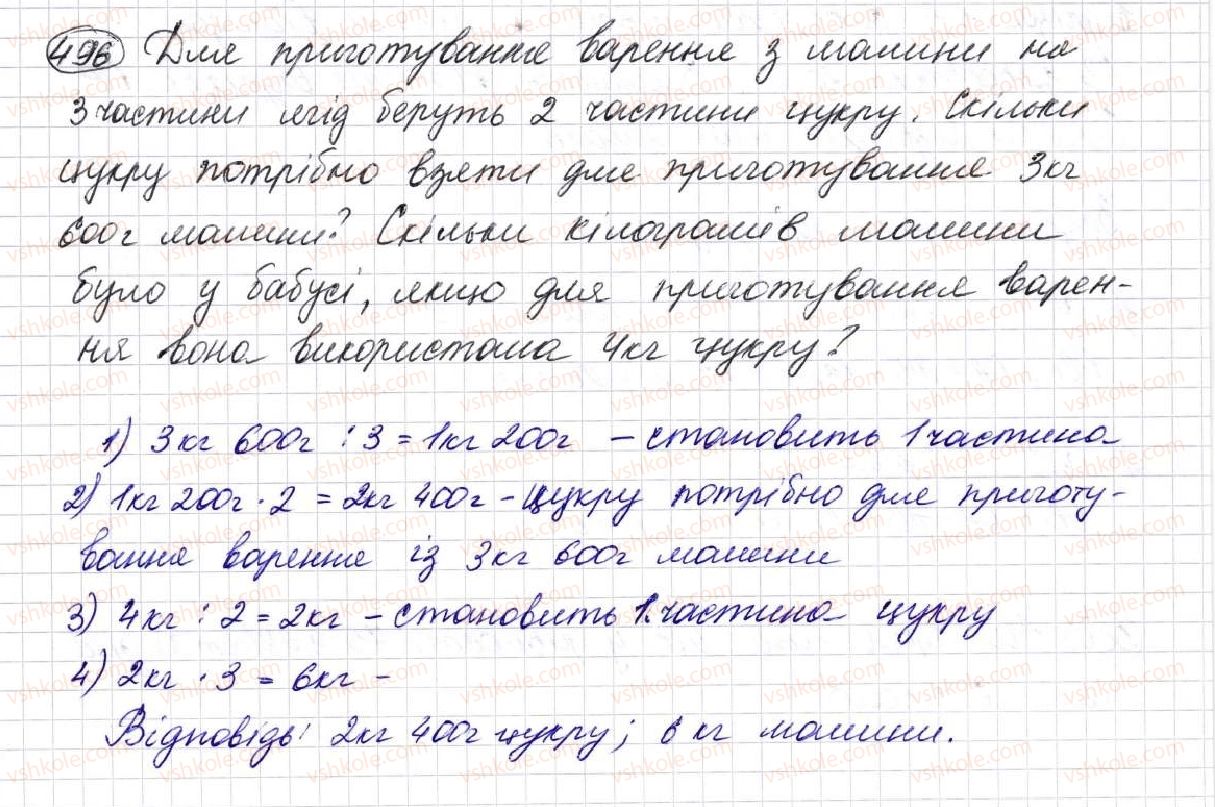 496 Для приготування варення з малини на
3 частини ягід беруть 2 частини цукру. Скільки
цукру потрібно взяти для приготування 3кг
600г малини? Скільки кілограмів малини
було у бабусі, якщо для приготування варен-
ня вона використала 4кг цукру?
1) 3кг 600г : 3 = 1кг 200г – становить 1 частина
2) 1кг 200г · 2 = 2кг 400г – цукру потрібно для приготу-
вання варення із 3кг 600г малини
3) 4кг : 2 = 2кг – становить 1 частина цукру
4) 2кг · 3 = 6кг –
Відповідь: 2кг 400г цукру; 6 кг малини.